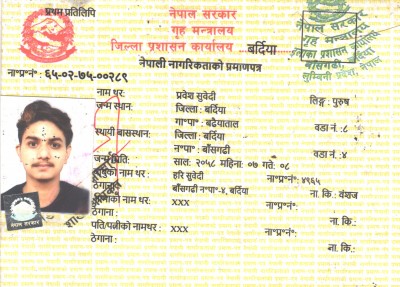 प्रथम प्रतिलिपि
नेपाल सरकार
गृह मन्त्रालय
जिल्ला प्रशासन कार्यालय, बर्दिया
नेपाली नागरिकताको प्रमाणपत्र
नेपाल सरकार
गृह मन्त्रालय
इलाका प्रशासन कार्यालय
बाँसगढी, बर्दिया
लुम्बिनी प्रदेश, नेपाल
ना॰प्र॰नं॰: ६५-०२-७५-००२८९
नाम थर: प्रवेश सुवेदी लिङ्ग: पुरुष
जन्म स्थान: जिल्ला: बर्दिया
गा॰पा॰: बढैयाताल वडा नं.:८
स्थायी बासस्थान: जिल्ला: बर्दिया
न॰पा॰: बाँसगढी वडा नं.:४
जन्म मिति: साल: २०५८ महिना: ०७ गते: ०८
बाबुको नाम थर: हरि सुवेदी ना॰प्र॰नं॰: ४९६५
ठेगाना: बाँसगढी न॰पा॰-४, बर्दिया ना. कि.: वंशज
आमाको नाम थर: xxx ना॰प्र॰नं॰:
ठेगाना: ना. कि.:
पति/पत्नीको नामथर: xxx ना॰प्र॰नं॰:
ठेगाना: ना. कि.:
नेपाल सरकार